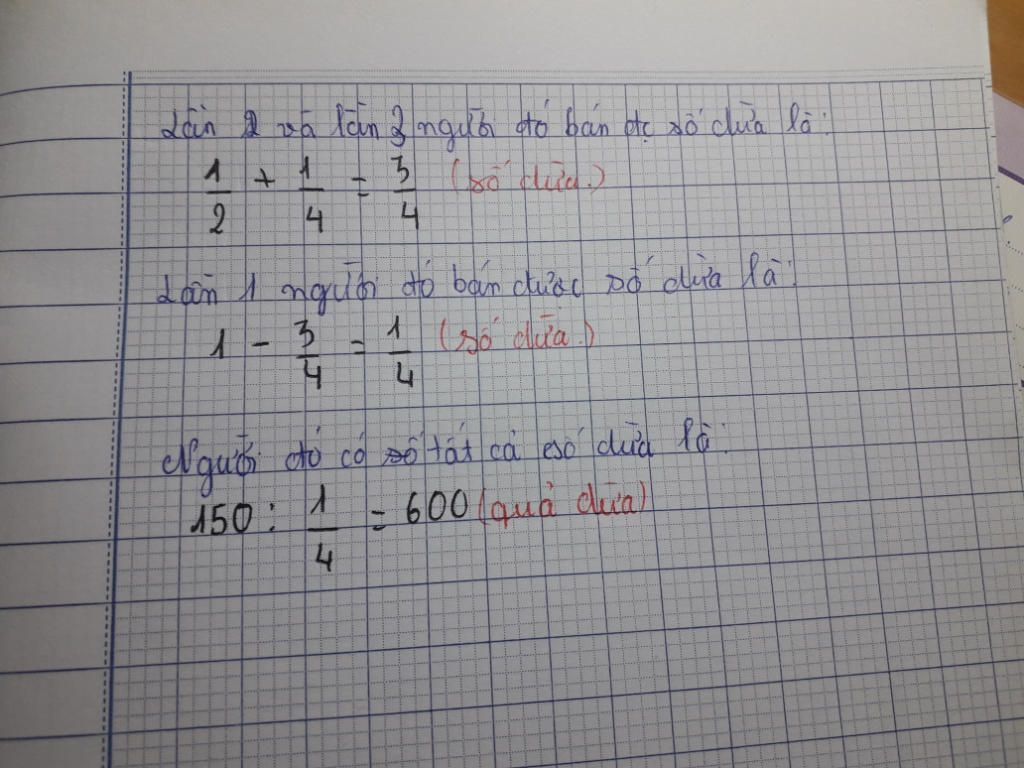 Lần 2 và lần 3 người đó bán đc số dừa là:
1/2 + 1/4 = 3/4 (số dừa.)
Lần 1 người đó bán được số dừa là:
1 - 3/4 = 1/4 (số dừa.)
Người đó có số tất cả số dừa là:
150 : 1/4 = 600 (quả dừa)